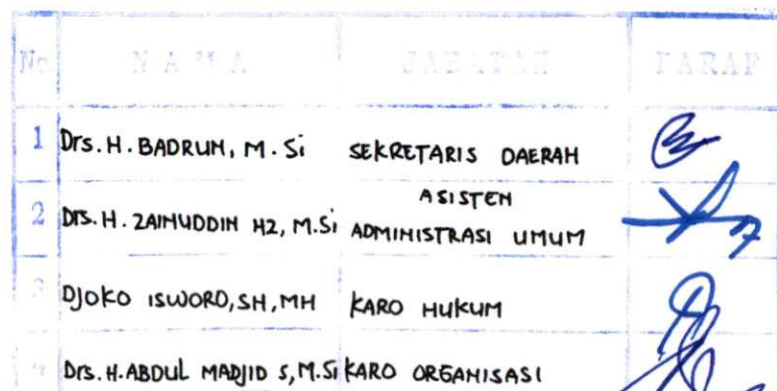 No NAMA JABATAN PARAF
1 Drs. H. BADRUN, M. Si SEKRETARIS DAERAH
2 Drs. H. ZAINUDDIN HZ, M.Si ASISTEN
ADMINISTRASI UMUM
3 DJOKO ISWORO, SH, MH KARO HUKUM
4 Drs. H. ABDUL MADJID S, M.Si KARO ORGANISASI